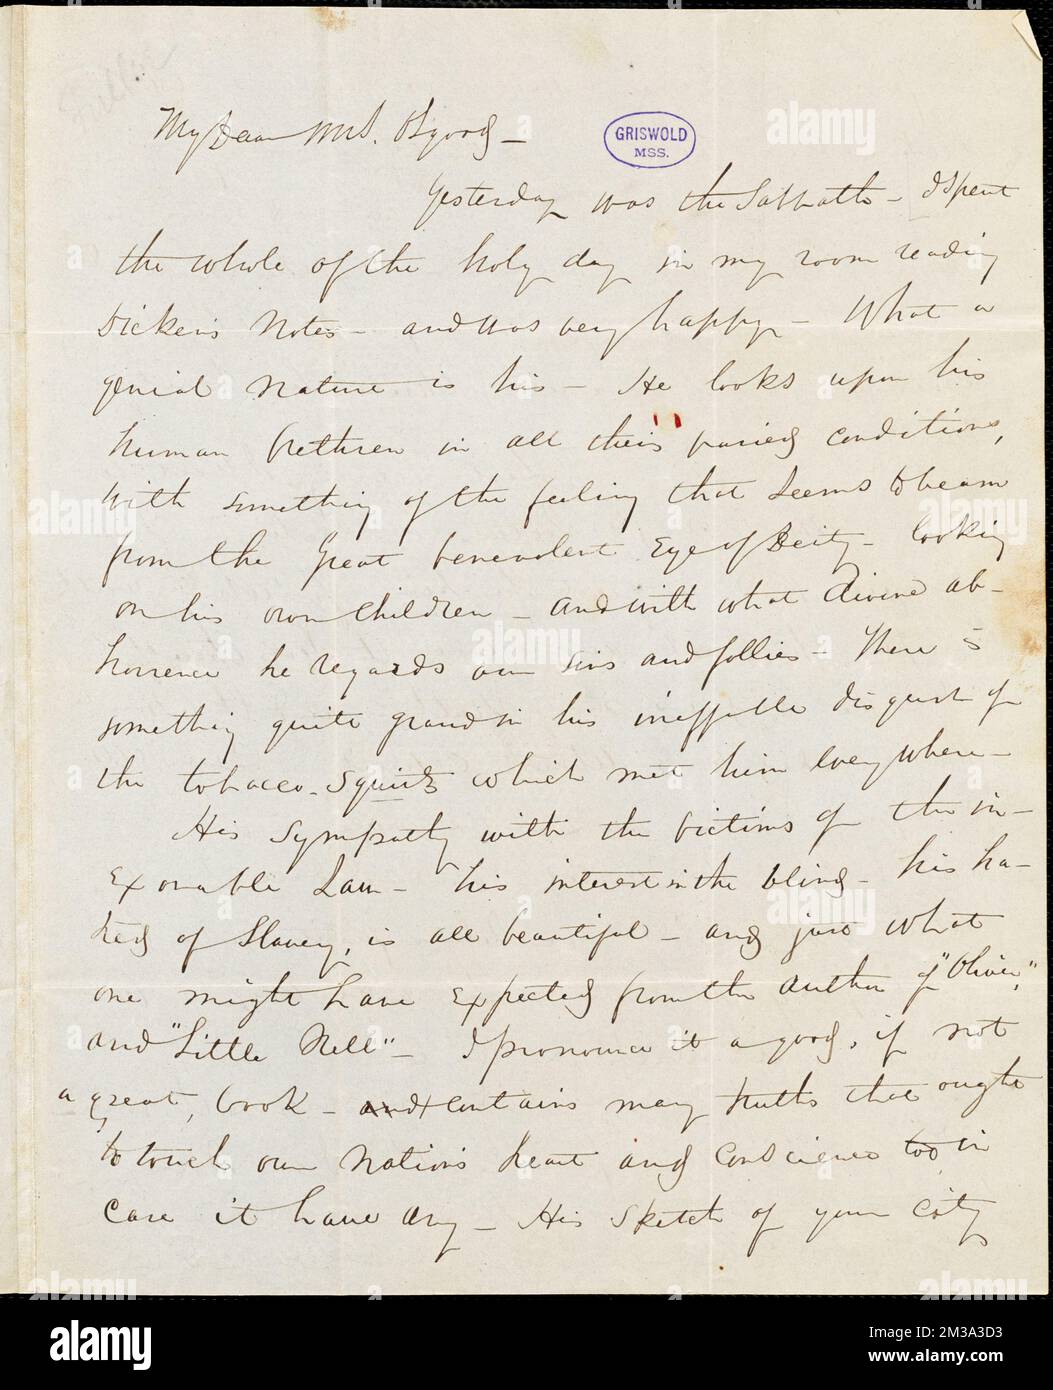 My Dear Mrs. Osgood –
GRISWOLD
MSS.
Yesterday was the Sabbath – I spent
the whole of the holy day in my room reading
Dickens Notes – and was very happy – What a
genial nature is his – He looks upon his
human brethren in all their varied conditions,
with something of the feeling that seems to beam
from the Great benevolent Eye of Deity – looking
on his own children – and with what divine ab-
horrence he regards our sins and follies – There is
something quite grand in his ineffable disgust of
the tobacco-squirts which met him everywhere –
His sympathy with the victims of the in-
exorable Law – his interest in the blind – his ha-
tred of Slavery, is all beautiful – and just what
one might have expected from the author of "Oliver",
and "Little Nell" – I pronounce it a good, if not
a great, book – and contains many truths that ought
to touch our Nation's heart and conscience too in
case it have any – His sketch of your City
alamy
Image ID: 2M3A3D3
www.alamy.com